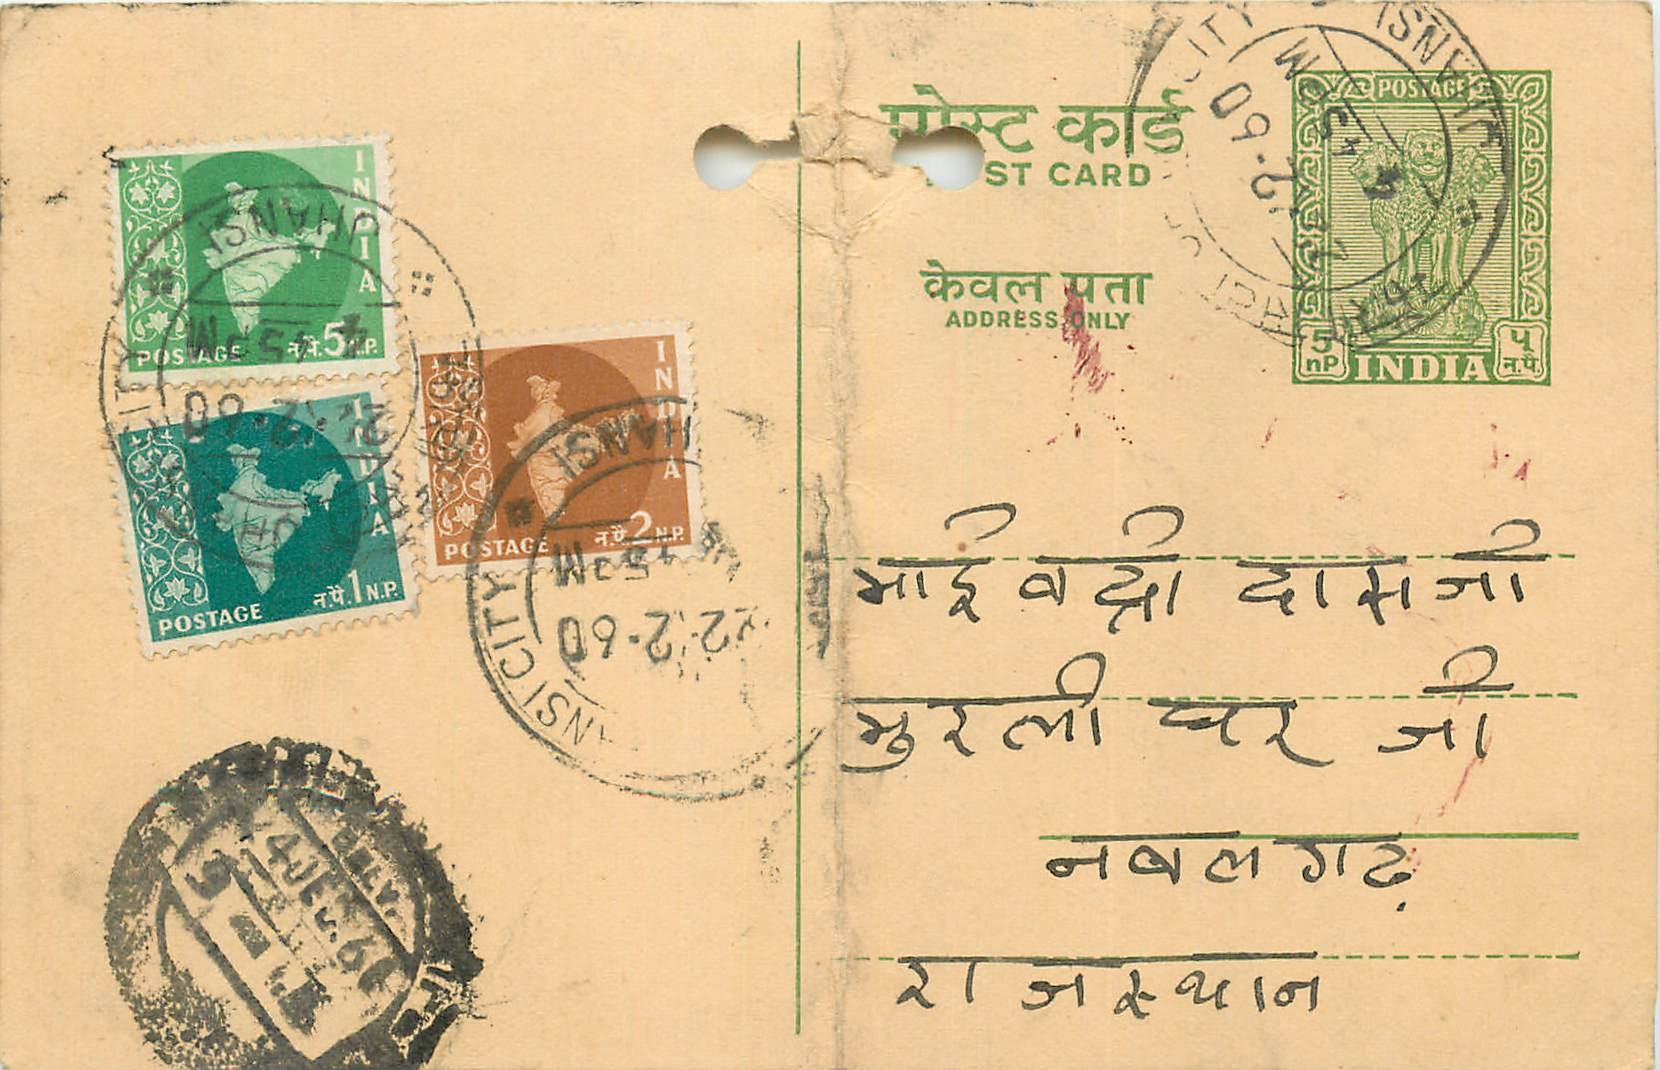 पोस्ट कार्ड
POST CARD
केवल पता
ADDRESS ONLY
POSTAGE
5 nP
INDIA
५ न.पै.
INDIA
POSTAGE न.पै. 5 N.P.
INDIA
POSTAGE न.पै. 1 N.P.
INDIA
POSTAGE न.पै. 2 N.P.
JHANSI CITY
4 45PM
22.2.60
JHANSI CITY
4 45PM
22.2.60
JHANSI CITY
45PM
22.2.60
DELY.
भाई बद्री दास जी
मुरली धर जी
नवलगढ़
राजस्थान